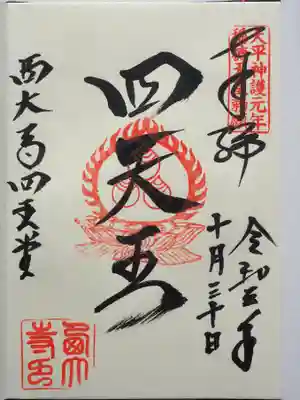 天平神護元年
奉拝
令和五年
十月三十日
四天王
西大寺四王堂
西大寺印